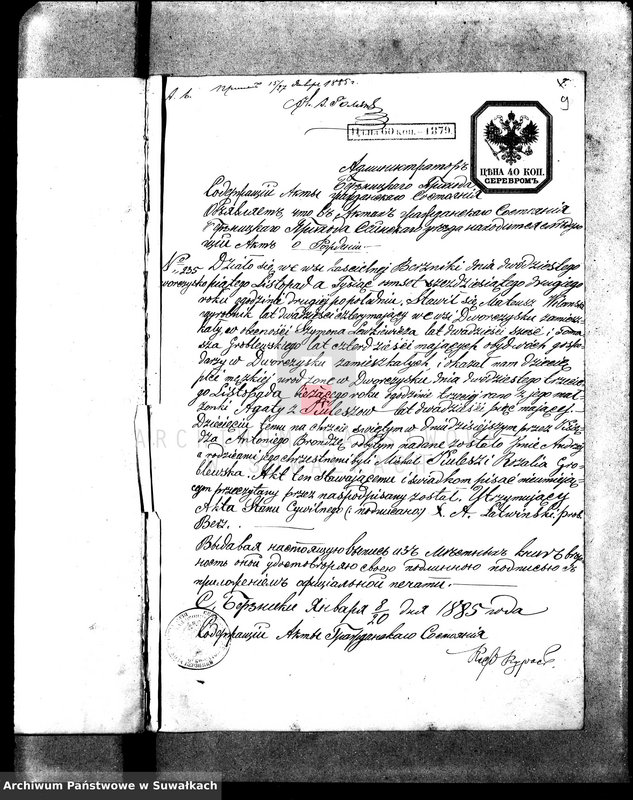 Цѣна 60 коп. — 1879.
9
ЦѢНА 40 КОП.
СЕРЕБРОМЪ
Администраторъ
Прихода
Содержащій Акты Гражданскаго Состоянія
Объявляетъ что въ Актахъ Гражданскаго Состоянія
Прихода Сейнскаго уѣзда находится
щій Актъ о Рожденіи.
No 235 Działo się we wsi kościelnej Berzniki dnia dwódziestego
Dworczysko piątego Listopada Tysiąc ośmset sześćdziesiątego drugiego
roku o godzinie drugiej popołudniu. Stawił się Mateusz
ogrodnik lat dwadzieścia cztery mający we wsi Dworczysku zamiesz-
kały w obecności Szymona lat dwadzieścia sześć i Toma-
sza Groblewskiego lat czterdzieści mających obydwóch gospo-
darzy w Dworczysku zamieszkałych i okazał nam dziecię
płci męzkiej urodzone w Dworczysku dnia dwódziestego trzecie-
go Listopada bieżącego roku o godzinie trzeciej rano z jego mał-
żonki Agaty z lat dwadzieścia pięć mającej.
Dziecięciu temu na chrzcie świętym w dniu dzisiejszym przez
dza Antoniego odbytym nadane zostało Imie Andrzej
a rodzicami jego chrzestnemi byli Michał Rozalia Gro-
blewska. Akt ten stawającemu i świadkom pisać nieumieją-
cym przeczytany przez nas podpisany został. Utrzymujący
Akta Stanu Cywilnego (: podpisano) X. A. Litwiński, prob.
Berz.
Выдавая настоящую выпись изъ книгъ вѣр-
ность оной удостовѣряю своею подписью съ
приложеніемъ официальной печати.
С. Бержники Января 8/20 дня 1885 года
Содержащій Акты Гражданскаго Состоянія
Archiwum Państwowe w Suwałkach